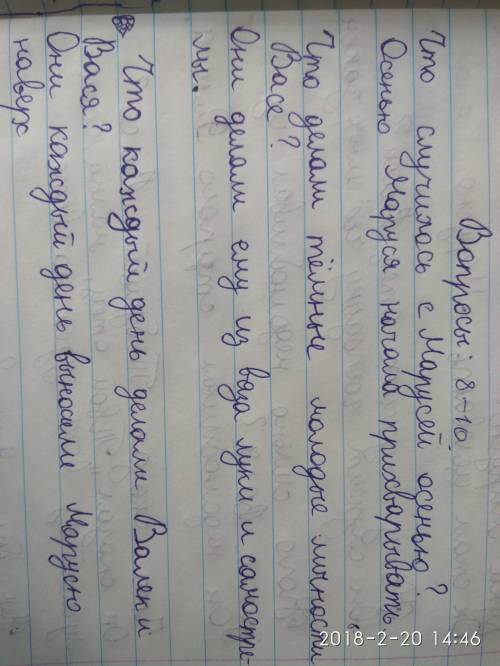 Вопросы: 8-10
Что случилось с Марусей осенью?
Осенью Маруся начала прихварывать
Что делали тёмные молодые личности
Васе?
Они делали ему из воза луки и самостре-
лы.
Что каждый день делали Валек и
Вася?
Они каждый день выносили Марусю
наверх
2018-2-20 14:46